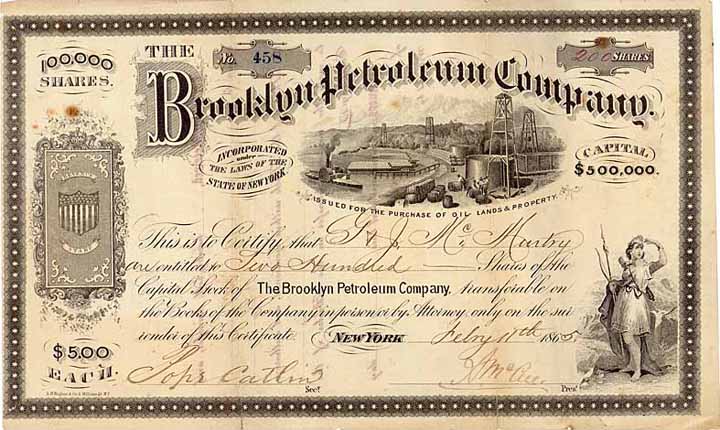 THE
No. 458
200 SHARES
100,000
SHARES.
Brooklyn Petroleum Company.
INCORPORATED
under
THE LAWS OF THE
STATE OF NEW YORK.
CAPITAL
$500,000.
ISSUED FOR THE PURCHASE OF OIL LANDS & PROPERTY.
This is to Certify, that T & J. Mc Murtry
are entitled to Two Hundred Shares of the
Capital Stock of The Brooklyn Petroleum Company, transferable on
the Books of the Company in person or by Attorney only on the sur
render of this Certificate. NEW YORK Febry 11th 1865
$5.00
EACH.
Catlin
Secy.
Prest.